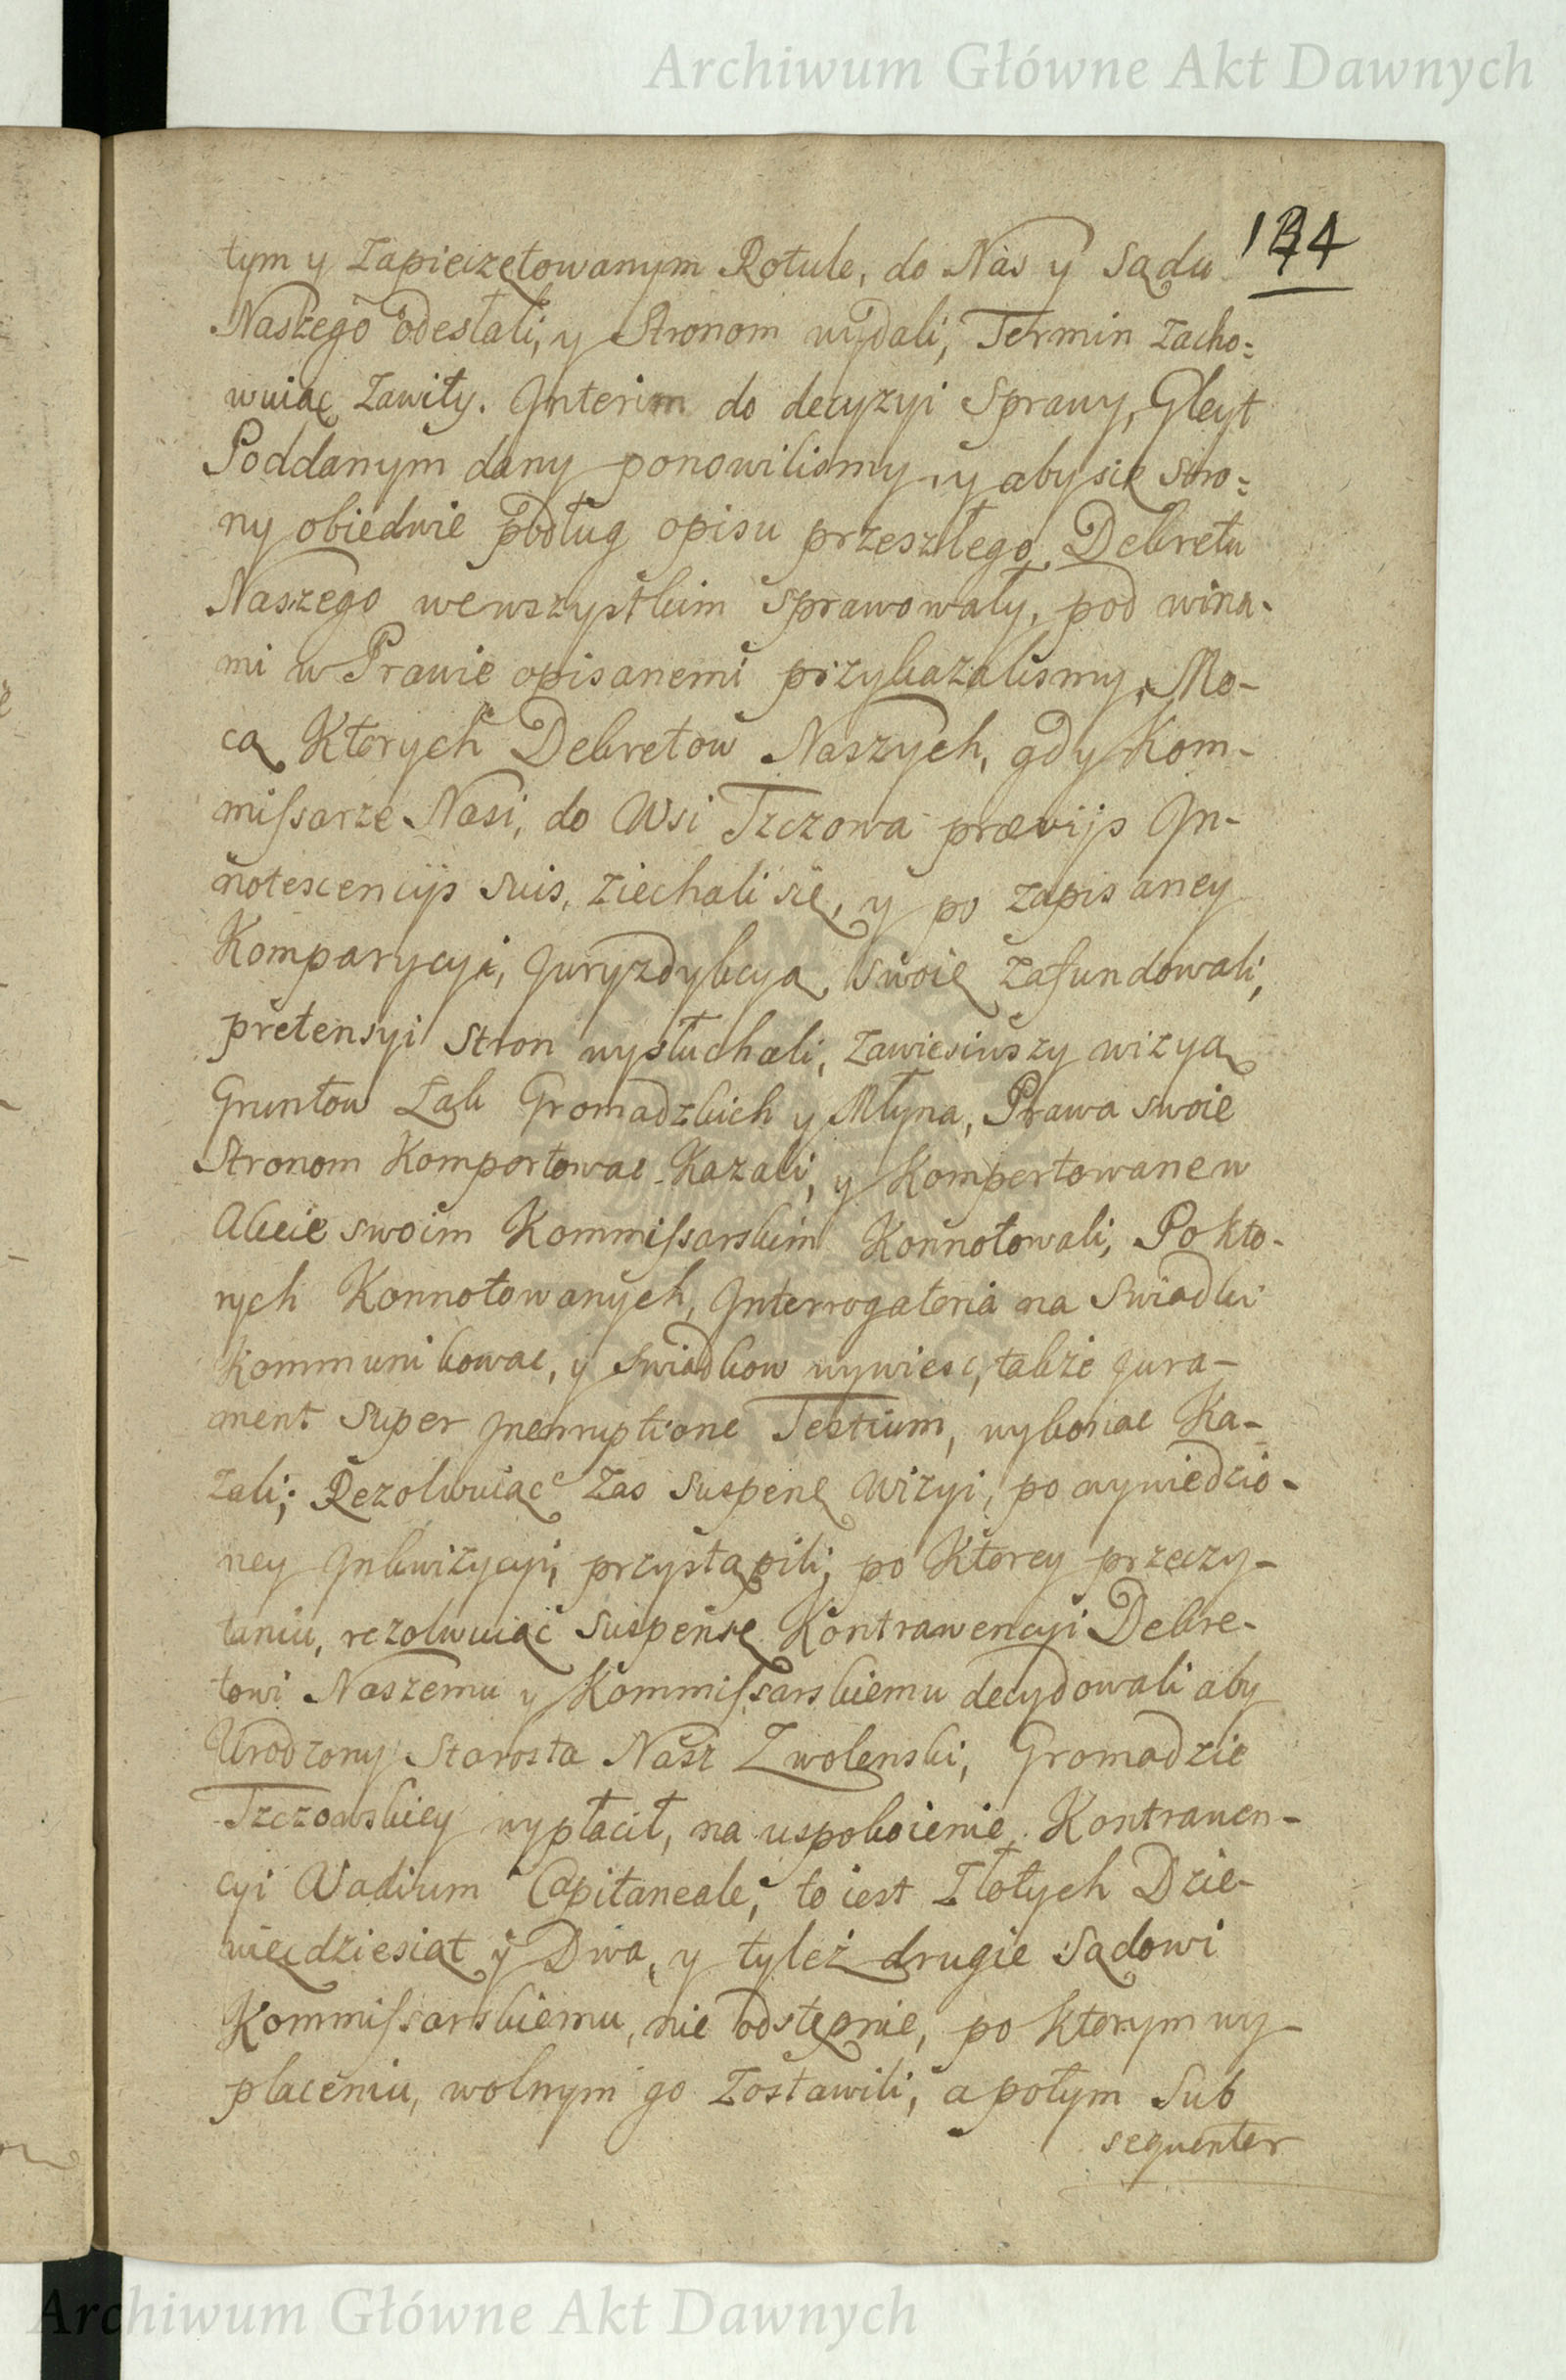 Archiwum Główne Akt Dawnych
144
tym y Zapieczętowanym Rotule, do Nas y Sądu
Naszego odesłali, y Stronom wydali, Termin zacho=
wuiąc Zawiły. Interim do decyzyi Sprawy, Gleyt
Poddanym dany ponowilismy, y aby się stro=
ny obiedwie podług opisu przeszłego Dekretu
Naszego wewszystkim sprawowały, pod wina-
mi w Prawie opisanemi przykazalismy, Mo-
cą Ktorych Dekretow Naszych, gdy Kom-
missarze Nasi, do Wsi Tczowa prævijs In-
notescencijs suis, ziechali się, y po zapisaney
Komparycyi, Juryzdykcyą swoię zafundowali,
pretensyi Stron wysłuchali, zawiesiwszy wizyą
Gruntow Łąk Gromadzkich y Młyna, Prawa swoie
Stronom Komportowac Kazali, y Komportowane w
Akcie swoim Kommissarskim Konnotowali, Po kto-
rych Konnotowanych, Interrogatoria na Swiadki
kommunikowac, y Swiadkow wywiesc, także Jura-
ment super Incorruptione Testium, wykonac Ka-
zali; Rezolwuiąc zas suspensę Wizyi, po wywiedzio-
ney Inkwizycyi, przystąpili, po Ktorey przeczy-
taniu, rezolwuiąc suspensę Kontrawencyi Dekre-
towi Naszemu y Kommissarskiemu decydowali aby
Urodzony Starosta Nasz Zwolenski, Gromadzie
Tczowskiey wypłacił, na uspokoienie Kontrawen-
cyi Vadium Capitaneale, to iest Złotych Dzie-
więcdziesiąt y Dwa, y tyleż drugie Sądowi
Kommissarskiemu, nie odstępnie, po ktorym wy-
płaceniu, wolnym go zostawili, a potym Sub
sequenter
Archiwum Główne Akt Dawnych